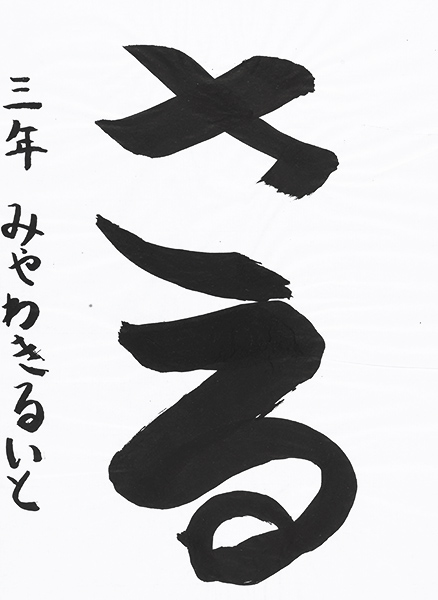 さる
三年 みやわきるいと